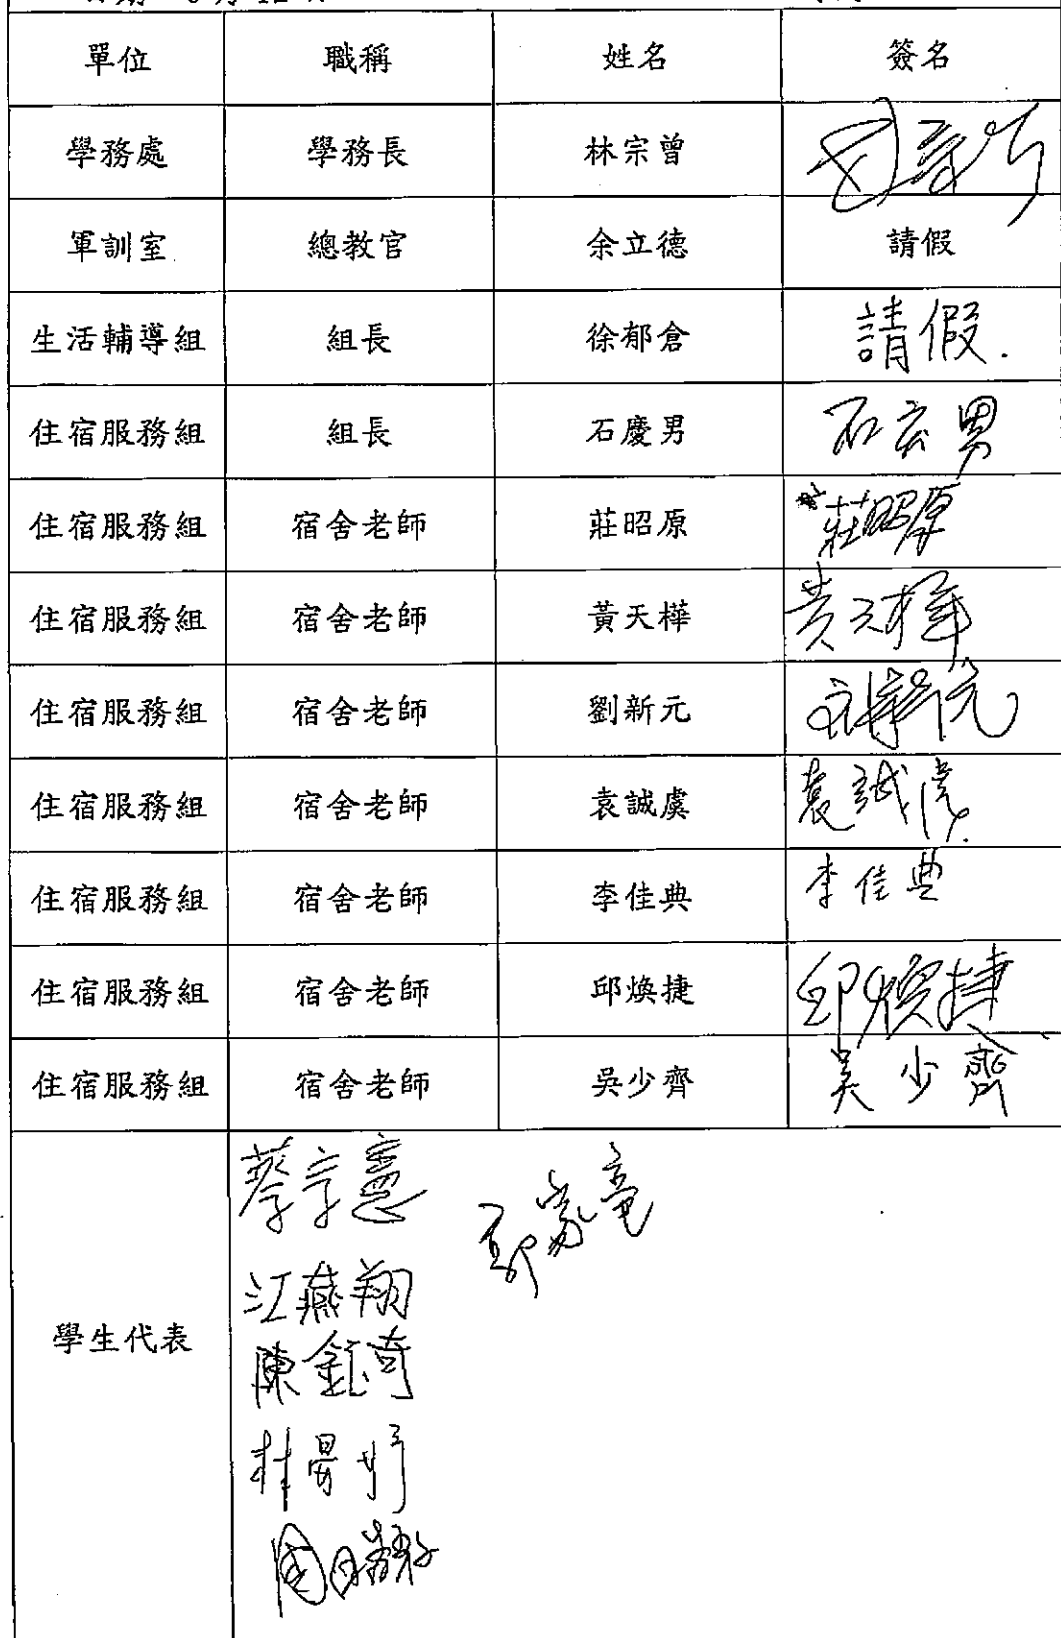 單位 職稱 姓名 簽名
學務處 學務長 林宗曾
軍訓室 總教官 余立德 請假
生活輔導組 組長 徐郁倉 請假.
住宿服務組 組長 石慶男 石慶男
住宿服務組 宿舍老師 莊昭原 莊昭原
住宿服務組 宿舍老師 黃天樺 黃天樺
住宿服務組 宿舍老師 劉新元 劉新元
住宿服務組 宿舍老師 袁誠虞 袁誠虞
住宿服務組 宿舍老師 李佳典 李佳典
住宿服務組 宿舍老師 邱煥捷 邱煥捷
住宿服務組 宿舍老師 吳少齊 吳少齊
學生代表
江燕翔
陳鈺琦